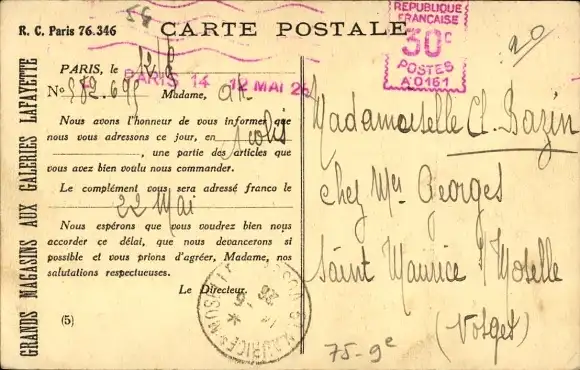 58
R. C. Paris 76.346
CARTE POSTALE
REPUBLIQUE
FRANÇAISE
30c
POSTES
A°0161
20
GRANDS MAGASINS AUX GALERIES LAFAYETTE
PARIS, le 12/5
PARIS 14 12 MAI 26
No 582.699 Madame,
Nous avons l'honneur de vous informer que
nous vous adressons ce jour, en 1 colis
, une partie des articles que
vous avez bien voulu nous commander.
Le complément vous sera adressé franco le
22 Mai
Nous espérons que vous voudrez bien nous
accorder ce délai, que nous devancerons si
possible et vous prions d'agréer, Madame, nos
salutations respectueuses.
Le Directeur.
(5)
Mademoiselle Cl. Bazin
chez Mr Georges
Saint Maurice s/ Moselle
(Vosges)
75-9e